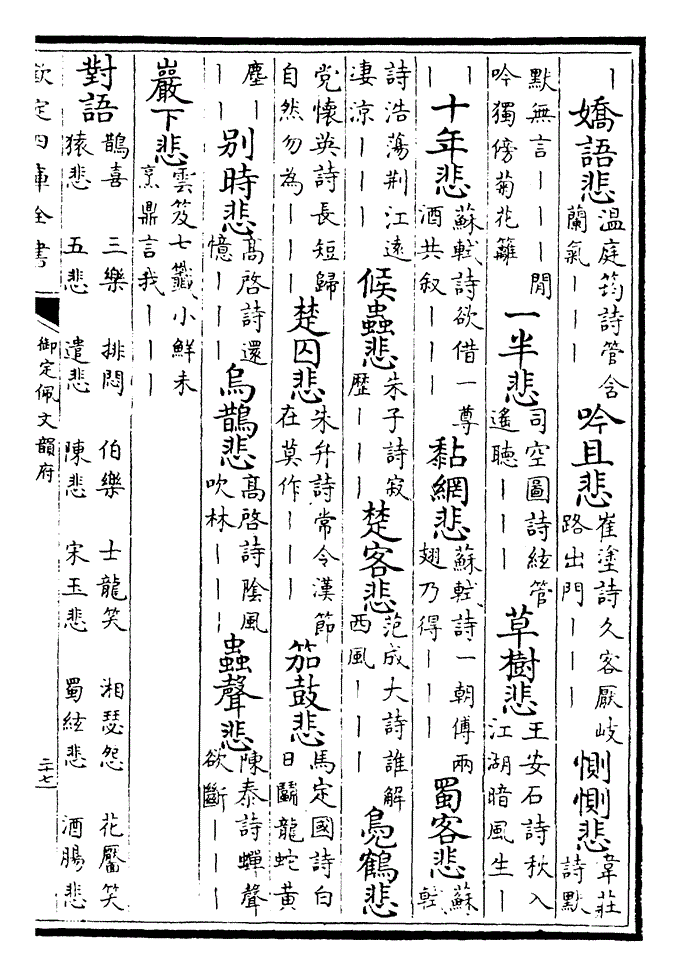 ｜嬌語悲温庭筠詩管含蘭氣｜｜｜吟且悲崔塗詩久客厭岐路出門｜｜｜惻惻悲韋莊詩默
默無言｜｜｜閒吟獨傍菊花籬一半悲司空圖詩絃管遙聽｜｜｜草樹悲王安石詩秋入江湖暗風生｜
｜｜十年悲蘇軾詩欲借一尊酒共叙｜｜｜黏網悲蘇軾詩一朝傅兩翅乃得｜｜｜蜀客悲蘇軾
詩浩蕩荆江遠淒涼｜｜｜候蟲悲朱子詩寂歷｜｜｜楚客悲范成大詩誰解西風｜｜｜鳧鶴悲
党懷英詩長短歸自然勿為｜｜｜楚囚悲朱升詩常令漢節在莫作｜｜｜笳鼓悲馬定國詩白日鬬龍蛇黄
塵｜｜｜别時悲高啓詩還憶｜｜｜烏鵲悲高啓詩陰風吹林｜｜｜蟲聲悲陳泰詩蟬聲欲斷｜｜｜
巖下悲雲笈七籤小鮮未烹鼎言我｜｜｜
對語
鵲喜 三樂 排悶 伯樂 士龍笑 湘瑟怨 花靨笑
猿悲 五悲 遣悲 陳悲 宋玉悲 蜀絃悲 酒腸悲
欽定四庫全書 御定佩文韻府 二十七